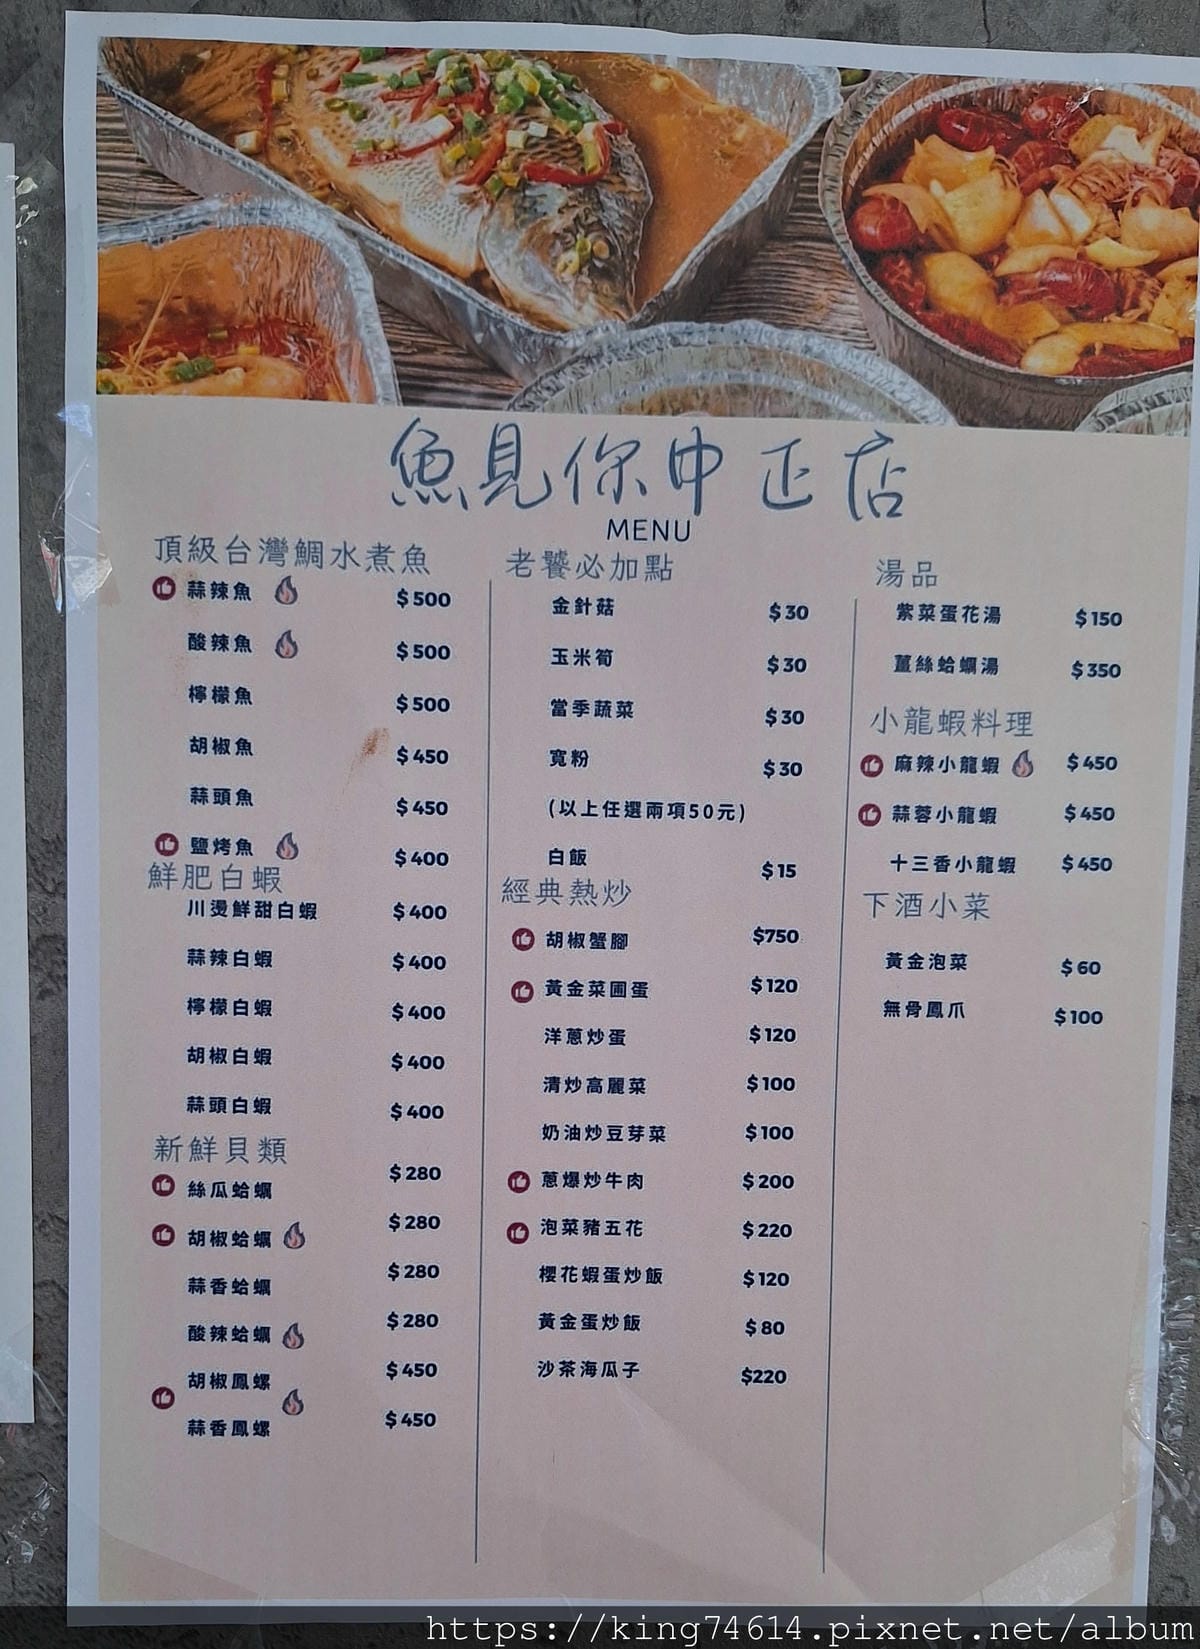 魚見你中正店
MENU
頂級台灣鯛水煮魚
蒜辣魚 $500
酸辣魚 $500
檸檬魚 $500
胡椒魚 $450
蒜頭魚 $450
鹽烤魚 $400
鮮肥白蝦
川燙鮮甜白蝦 $400
蒜辣白蝦 $400
檸檬白蝦 $400
胡椒白蝦 $400
蒜頭白蝦 $400
新鮮貝類
絲瓜蛤蠣 $280
胡椒蛤蠣 $280
蒜香蛤蠣 $280
酸辣蛤蠣 $280
胡椒鳳螺 $450
蒜香鳳螺 $450
老饕必加點
金針菇 $30
玉米筍 $30
當季蔬菜 $30
寬粉 $30
(以上任選兩項50元)
白飯 $15
經典熱炒
胡椒蟹腳 $750
黃金菜圃蛋 $120
洋蔥炒蛋 $120
清炒高麗菜 $100
奶油炒豆芽菜 $100
蔥爆炒牛肉 $200
泡菜豬五花 $220
櫻花蝦蛋炒飯 $120
黃金蛋炒飯 $80
沙茶海瓜子 $220
湯品
紫菜蛋花湯 $150
薑絲蛤蠣湯 $350
小龍蝦料理
麻辣小龍蝦 $450
蒜蓉小龍蝦 $450
十三香小龍蝦 $450
下酒小菜
黃金泡菜 $60
無骨鳳爪 $100
https://king74614.pixnet.net/album